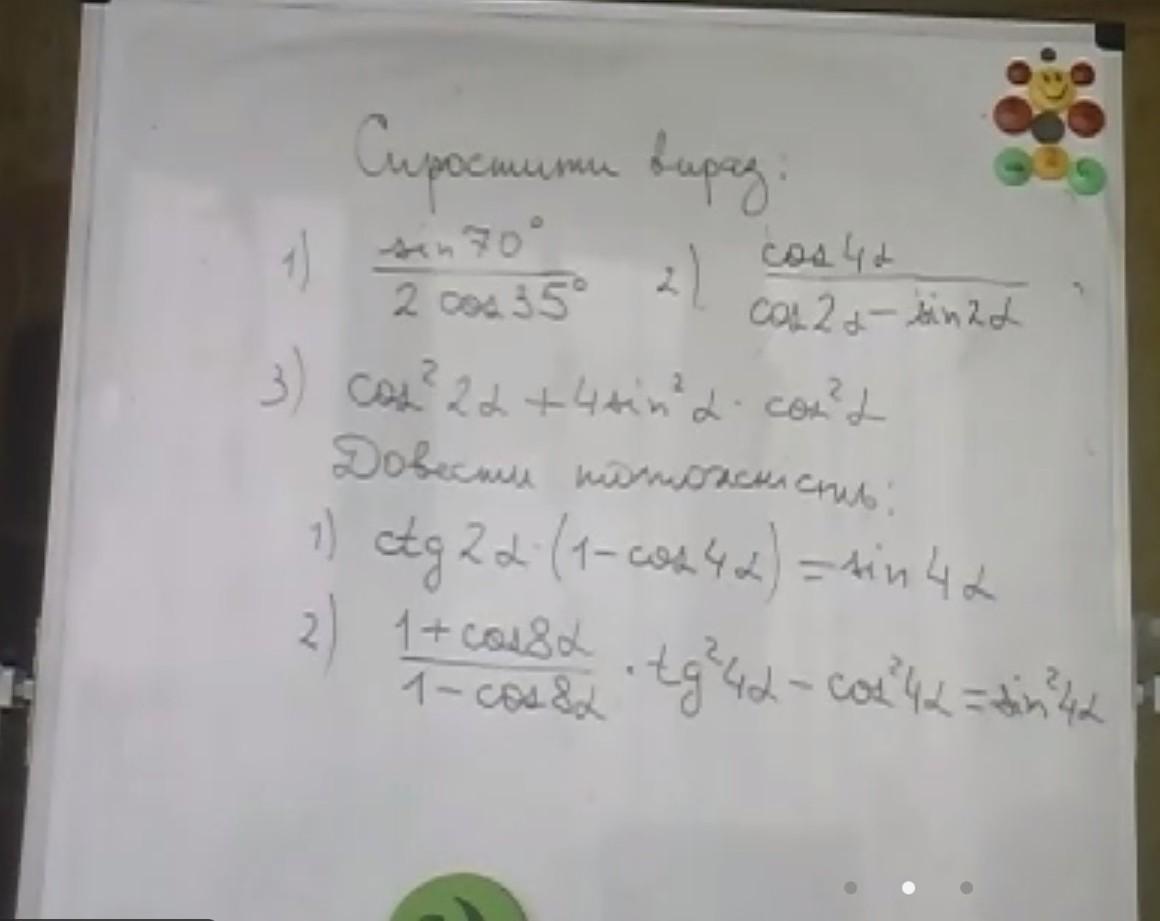 Спростити вираз:
1) sin 70° / 2 cos 35° 2) cos 4α / cos 2α - sin 2α
3) cos² 2α + 4 sin² α · cos² α
Довести тотожність:
1) ctg 2α · (1 - cos 4α) = sin 4α
2) 1 + cos 8α / 1 - cos 8α · tg² 4α - cos² 4α = sin² 4α